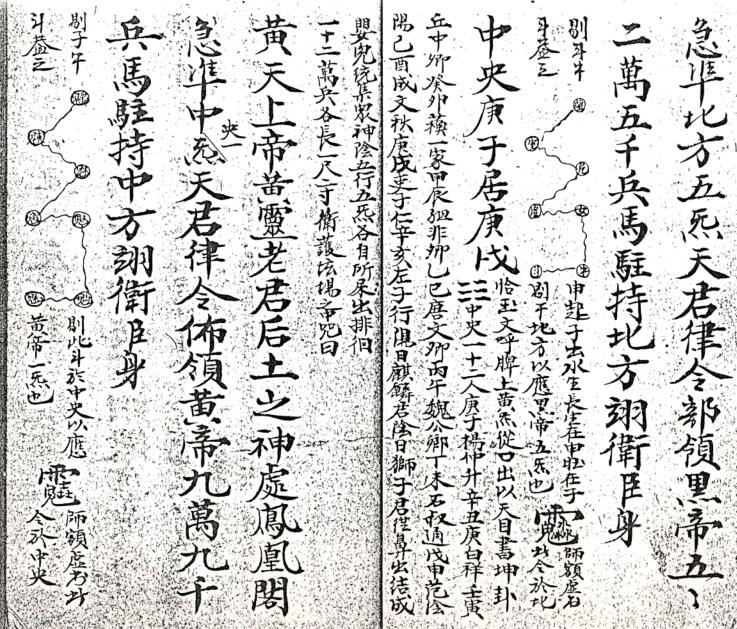 急準北方五炁天君律令部領黑帝五〻
二萬五千兵馬駐持北方翊衛臣身
剔斗午
斗
申起子出水生長生在申旺在子
剔于北方以應黑帝五炁也
師額虛書
此令於北
中央庚子居庚戌
恰玉文呼脾土黃炁從口出以天目書坤卦
☷中央一十二人庚子楊仲升辛丑庚白祥壬寅
丘中卿癸卯蘓一家甲辰孟非卿乙巳唐文卿丙午魏公卿丁未石叔通戊申范陰
陽己酉成文秋庚戌史子仁辛亥左子行陽曰麒麟君陰曰獅子君從鼻出結成
嬰兒統集眾神陰五行五炁各自所屎出排徊
一十二萬兵各長一尺二寸衛護坛場帝咒曰
黃天上帝黃靈老君后土之神處鳳凰閣
急準中央一炁天君律令佈領黃帝九萬九千
兵馬駐持中方翊衛臣身
剔子午
斗
剔此斗於中央以應
黃帝一炁也
師額虛書斗
令於中央